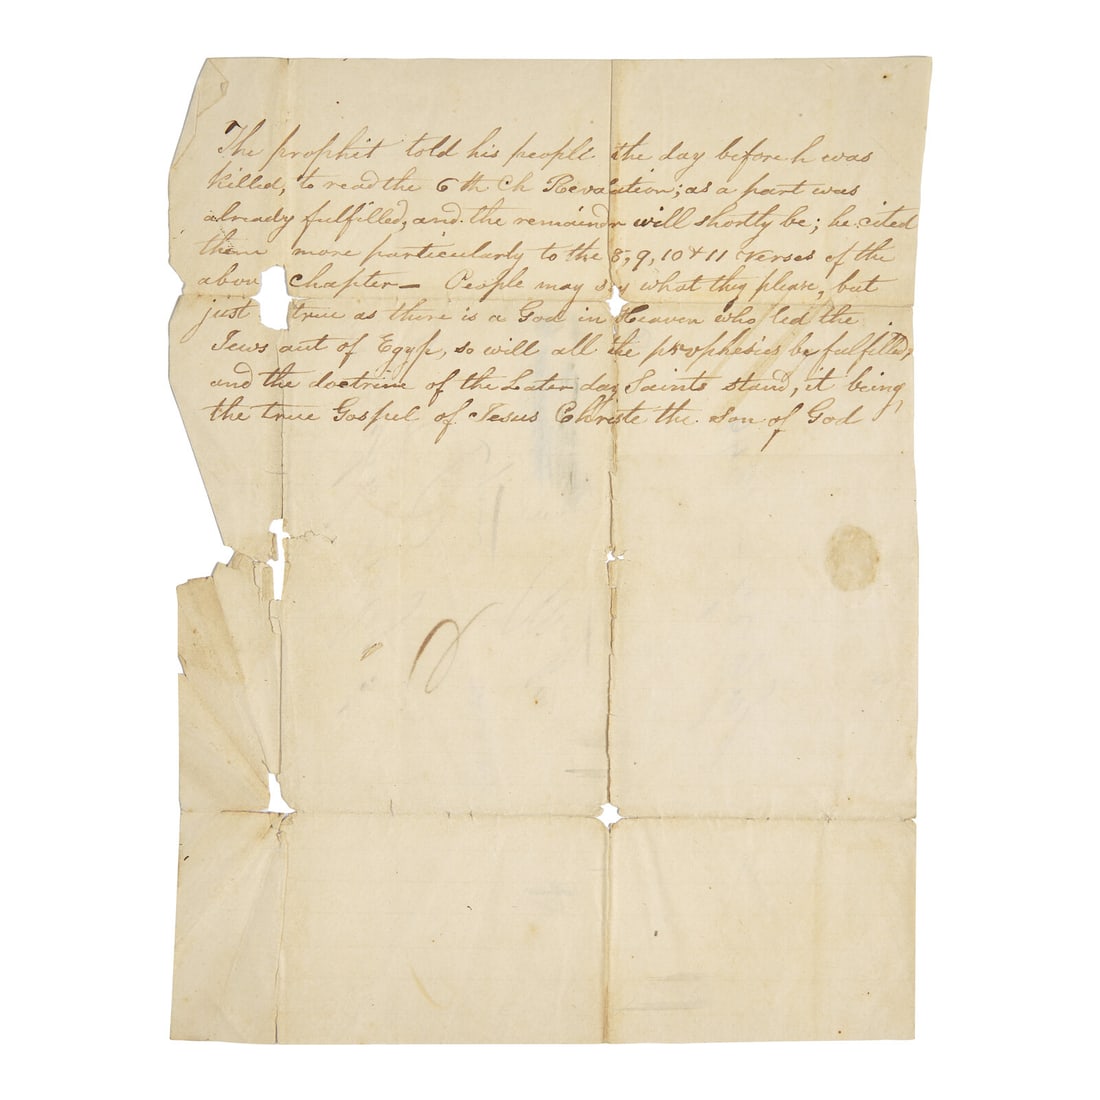 The prophit told his people the day before h was
killed, to read the 6th Ch Revalation; as a part was
already fulfilled, and the remaindr will shortly be; he cited
them more particularly to the 8, 9, 10 & 11 verses of the
abov chapter — People may say what they please, but
just true as there is a God in Heaven who led the
Jews out of Egypt, so will all the prophesies be fulfilled,
and the doctrine of the Later day Saints stand, it being
the true Gospel of Jesus Christe the son of God